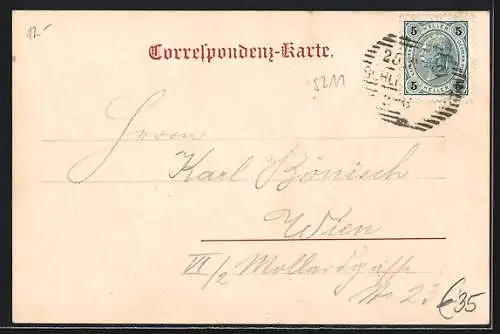 12.-
Correspondenz-Karte.
5 HELLER 5
5 HELLER 5
5211
Herrn
Karl Bönisch
Wien
VI/2 Mollardgasse
No 23
€35